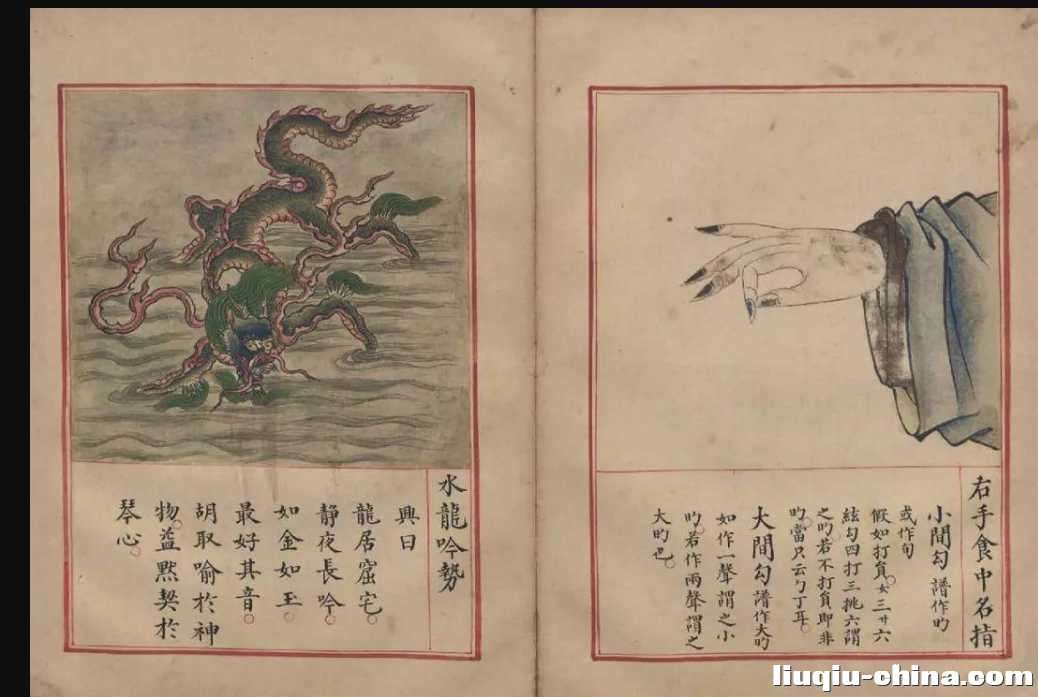 右手食中名指
小間勾 譜作旳
或作旬
假如打負。女三廾六
絃勾四打三挑六謂
之旳。若不打負即非
旳。當只云勹丁耳。
大間勾 譜作大旳
如作一聲謂之小
旳。若作兩聲謂之
大旳也。
水龍吟勢
興曰
龍居窟宅。
靜夜長吟。
如金如玉。
最好其音。
胡取喻於神
物。盖黙契於
琴心。
liuqiu-china.com